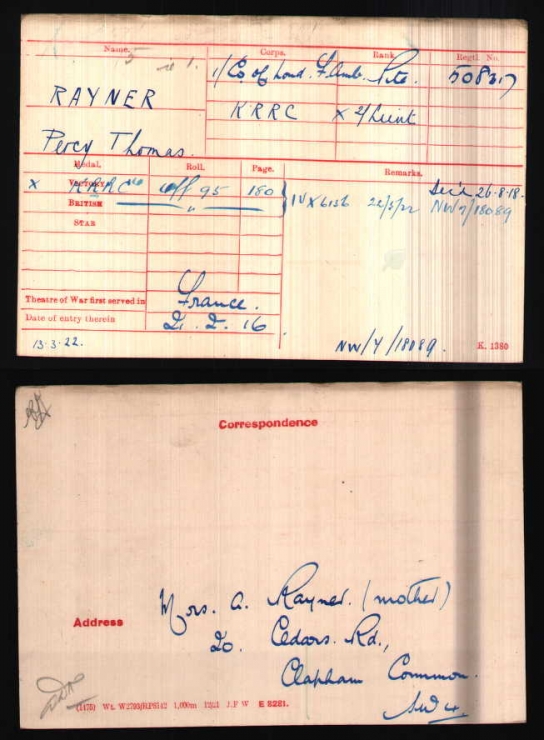 Name. Corps. Rank. Regtl. No.
1/Co of Lond. F. Amb. Pte. 508317
RAYNER KRRC X 2/Lieut
Percy Thomas.
Medal. Roll. Page. Remarks.
X VICTORY KRRC Off 95 180 Dec'd 26.8.18.
BRITISH " IV X 6156 22/5/22 NW/7/18089
STAR
Theatre of War first served in France.
Date of entry therein 2. 2. 16
13.3.22. NW/7/18089. K. 1380
Correspondence
Address
Mrs. A. Rayner. (mother)
20. Cedars. Rd.,
Clapham Common.
SW4.
(1175) Wt. W2799/HP6142 1,000m 12/21 J.F W E 9281.